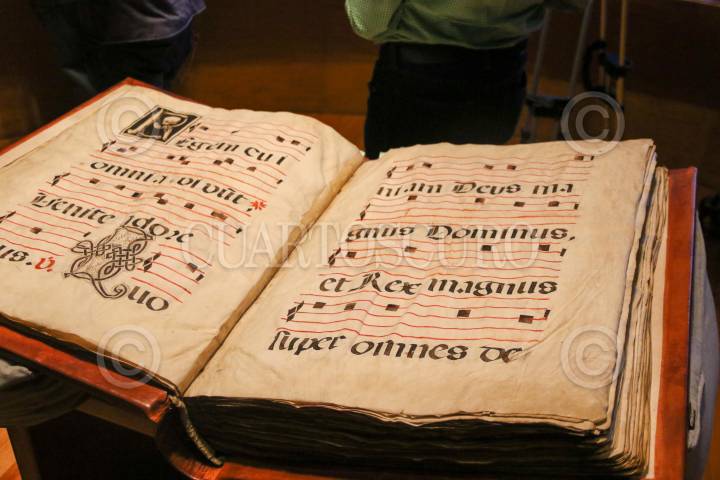 Regem cui
omnia vivũt,
Venite adore
us. V. Quo
niam Deus ma
gnus Dominus,
et Rex magnus
ſuper omnes de
© CUARTOSCURO ©
© ©